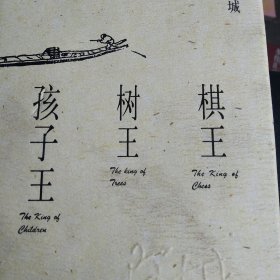 城
棋王
The King of
Chess
树王
The King of
Trees
孩子王
The King of
Children